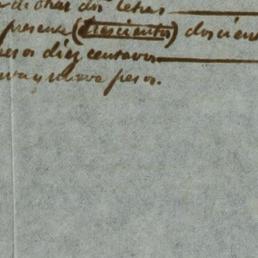 dichas dos letras
presente (trescientos) doscien
pesos diez centavos
ta y nueve pesos.